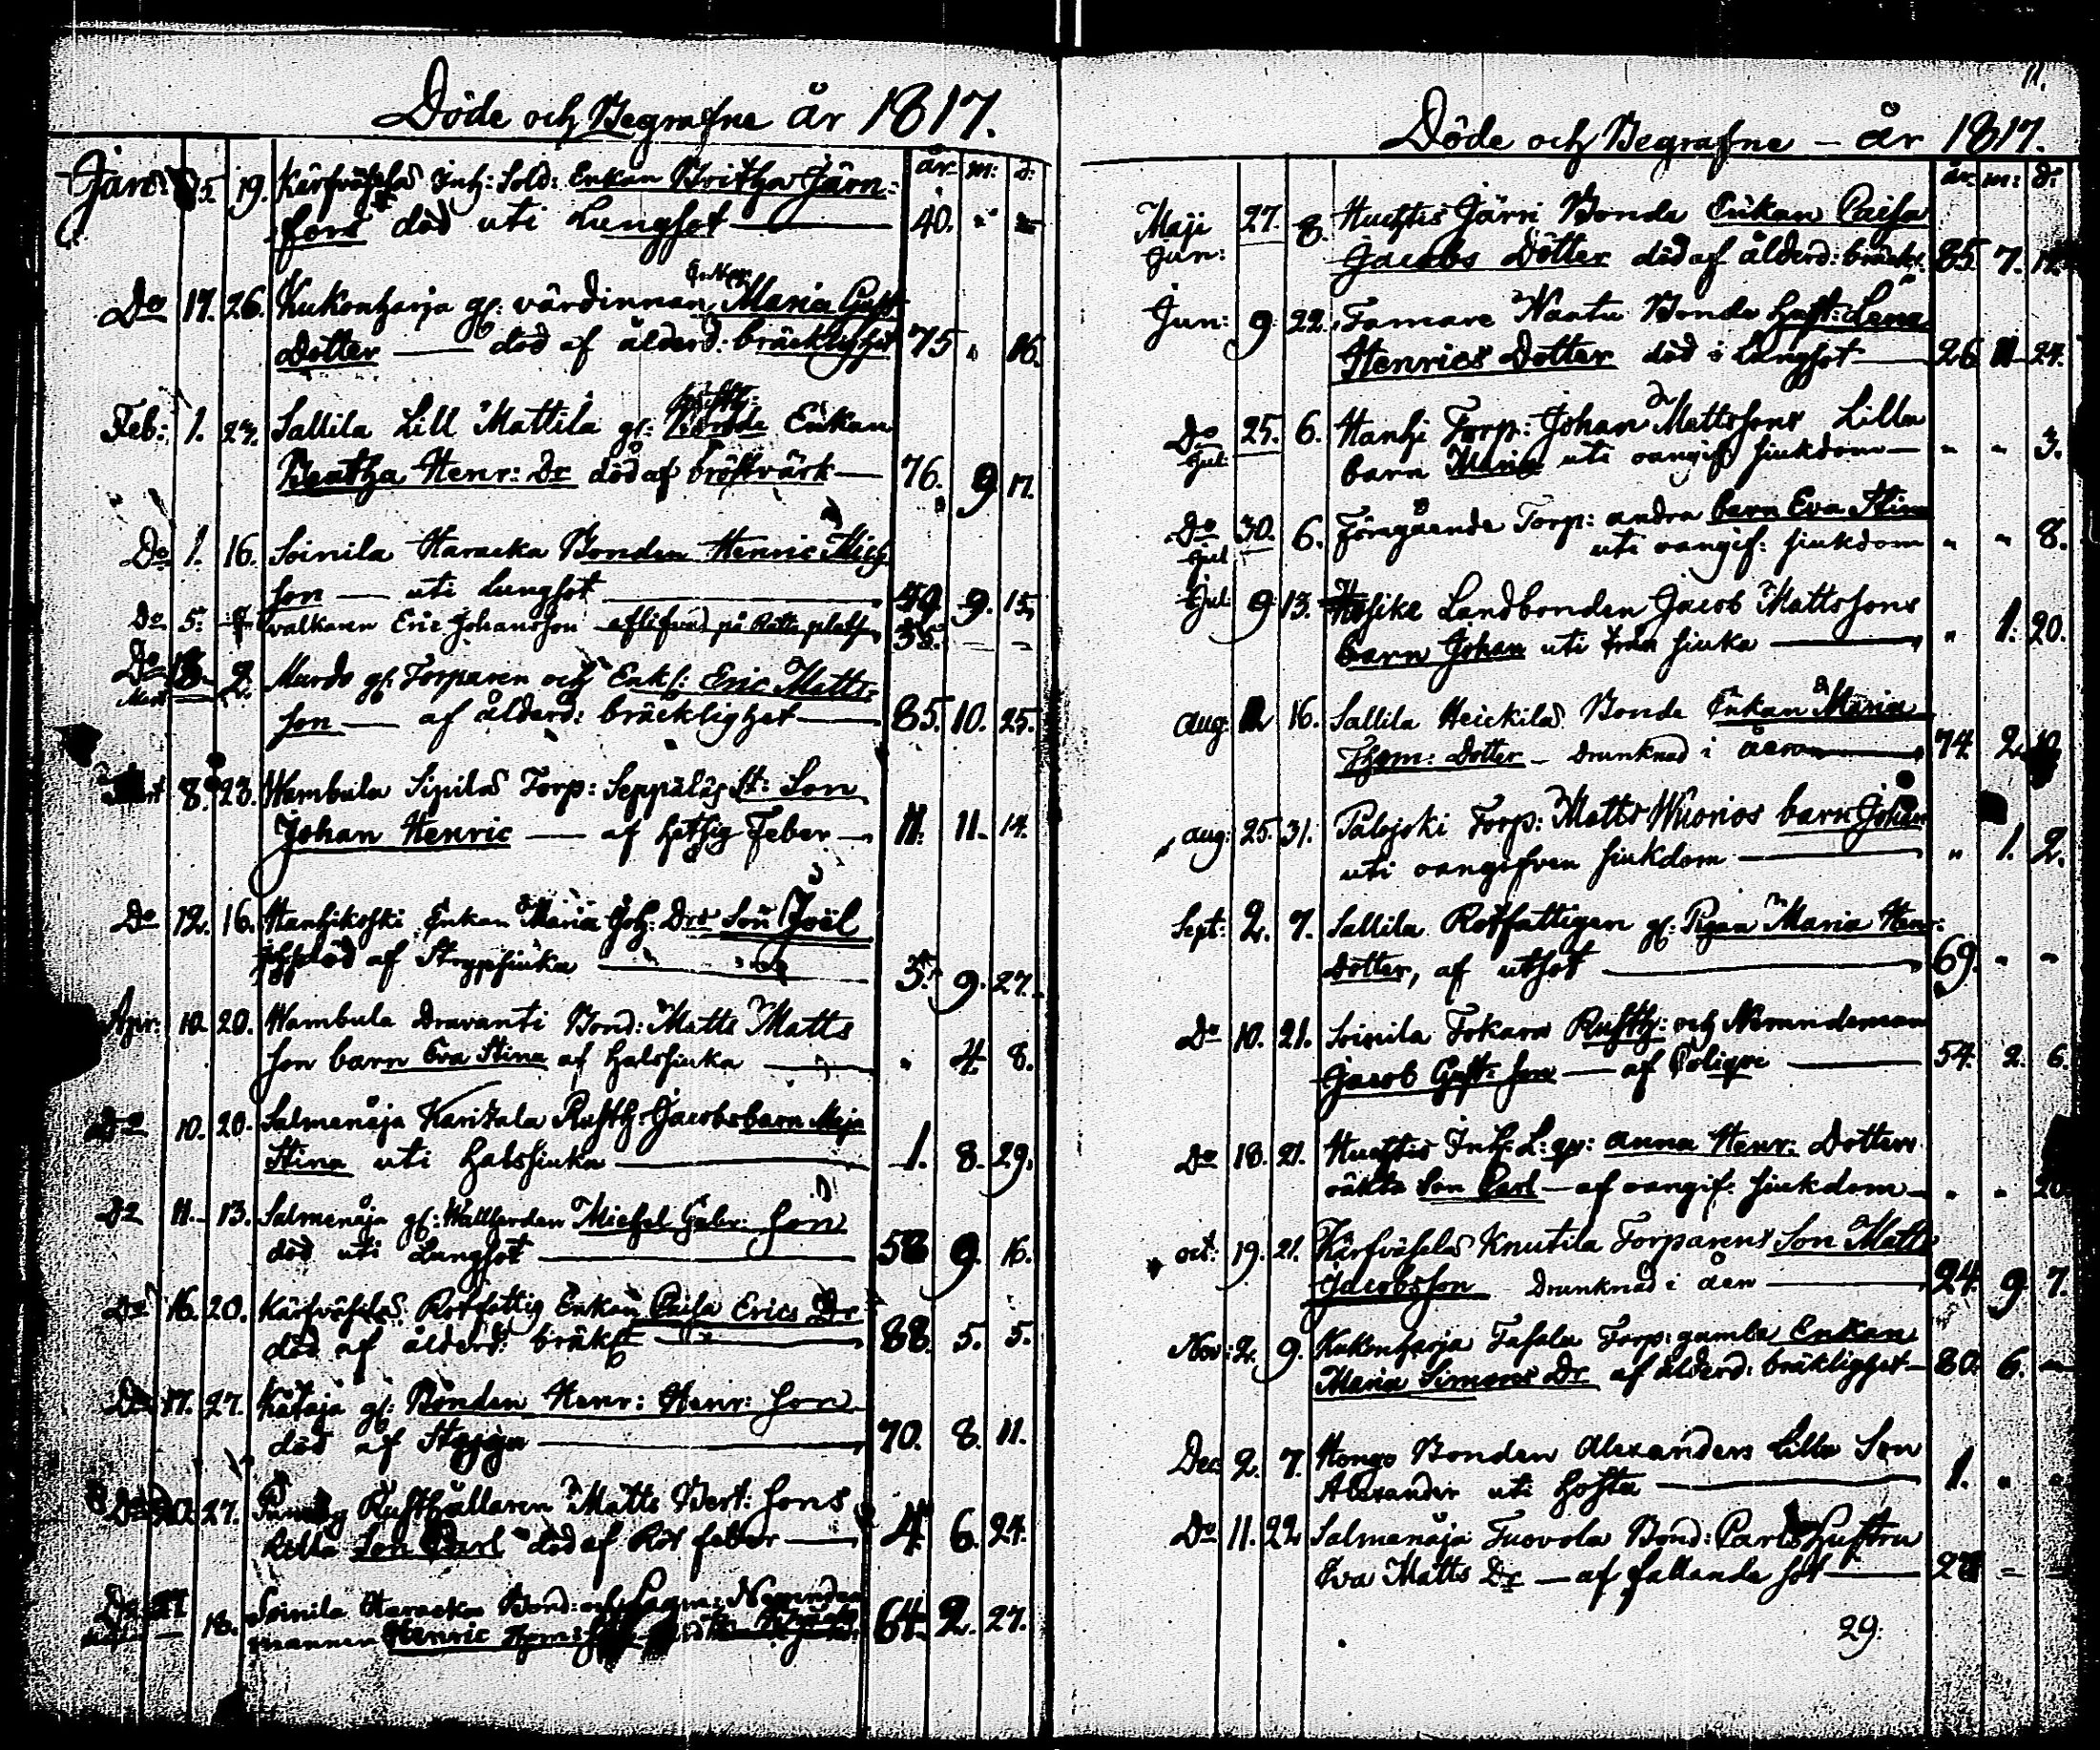 Döde och Begrafne år 1817.
år. m: d:
Jan: 15. 19. Kärfväselas Inh: Sold: Enkan Britha Järn-
fors död uti Lungsot — 40. " "
Enkan
Do 17. 26. Kukonharja gl: värdinnan Maria Gust
Dotter — död af ålderd: bräcklighet 75 " 16.
Feb: 1. 23. Sallila Lill Mattila gl: Enkan
Beatha Henr: Dr död af bröstvärk — 76. 9 17.
Do 1. 16. Soinila Haracka Bonden Henric Mich
son — uti Lungsot — 49. 9. 15.
Do 5. Eric Johansson aflifvad på Rätteplatsen 35. — —
Do 18. 2. Murdo gl: Torparen och Enkl: Eric Matts-
Mart
son — af ålderd: bräcklighet — 85. 10. 25.
Mart 8. 23. Wambula Sipilas Torp: Seppäläs St: Son
Johan Henric — af hetsig Feber — 11. 11. 14.
Do 12. 16. Hanhikoski Enkan Maria Joh: Drs Son Joël
död af Strypsiuka — 5. 9. 27.
Apr: 10. 20. Wambula Dravanti Bond: Matts Matts
son barn Eva Stina af halssiuka — " 4. 8.
Do 10. 20. Salmenåja Karitala Rusth: Jacobs barn Maja
Stina uti halssiuka — 1. 8. 29.
Do 11. 13. Salmenåja gl: Michel Gabr: son
död uti Lungsot — 58 9. 16.
Do 16. 20. Kärfväselas Rotfattig Enkan Caisa Erics Dr
död af ålderd: bräkl: — 88. 5. 5.
Do 17. 27. Kätäjä gl: Bonden Henr: Henr: son
död af Stygn — 70. 8. 11.
Do 20. 27. Rusthållaren Matts Bert: sons
lilla son Carl död af Röt feber — 4. 6. 24.
Do 27 18. Soinila Haracka Bond: och Lagm: Nemnde
mannen Henric 64. 2. 27.
11.
Döde och Begrafne – år 1817.
år. m: d:
Maji 27. 8. Huhtis Järri Bonde Enkan Caisa
Jun:
Jacobs Dotter död af ålderd: bräckl. 85. 7. 12.
Jun: 9. 22. Tamare Wantu Bonde hust: Lena
Henrics Dotter död i Lungsot — 26 11 24.
Do 25. 6. Hanhi Torp: Johan Mattssons Lilla
Jul:
barn Maria uti oangif: siukdom — " " 3.
Do 30. 6. Föregående Torp: andra barn Eva Stina
Jul
uti oangif: siukdom " " 8.
Jul: 9. 13. Landbonden Jacob Mattssons
barn Johan uti siuka — " 1. 20.
Aug: 16. Sallila Heickilas Bonde Enkan Maria
Thom: Dotter – Drunknad i åen — 74. 2.
Aug: 25. 31. Palojoki Torp: Matts Wuorios barn Johan
uti oangifven siukdom — " 1. 2.
Sept: 2. 7. Sallila Rotfattigen gl: Pigan Maria Henr:
dotter, af utsot — 69. " "
Do 10. 21. Soinila Tokara Rusth: och Nemndeman
Jacob Gust: son — af Colique — 54. 2. 6.
Do 18. 21. Huhtis Inh: L: qv: Anna Henr: Dotters
oäkta Son Carl — af oangif: siukdom — " " 20.
Oct: 19. 21. Kärfväselas Knutila Torparens Son Matts
Jacobsson Drunknad i åen — 24. 9. 7.
Nov: 2. 9. Kukonharja Tasala Torp: gamla Enkan
Maria Simons Dr af ålderd: bräklighet — 80. 6. —
Dec: 2. 7. Hongo Bonden Alexanders lilla Son
Alexander uti hosta — 1. " "
Do 11. 22 Salmenåja Tuovola Bond: Carls hustru
Eva Matts Dr — af fallande sot — 27 – –
29.